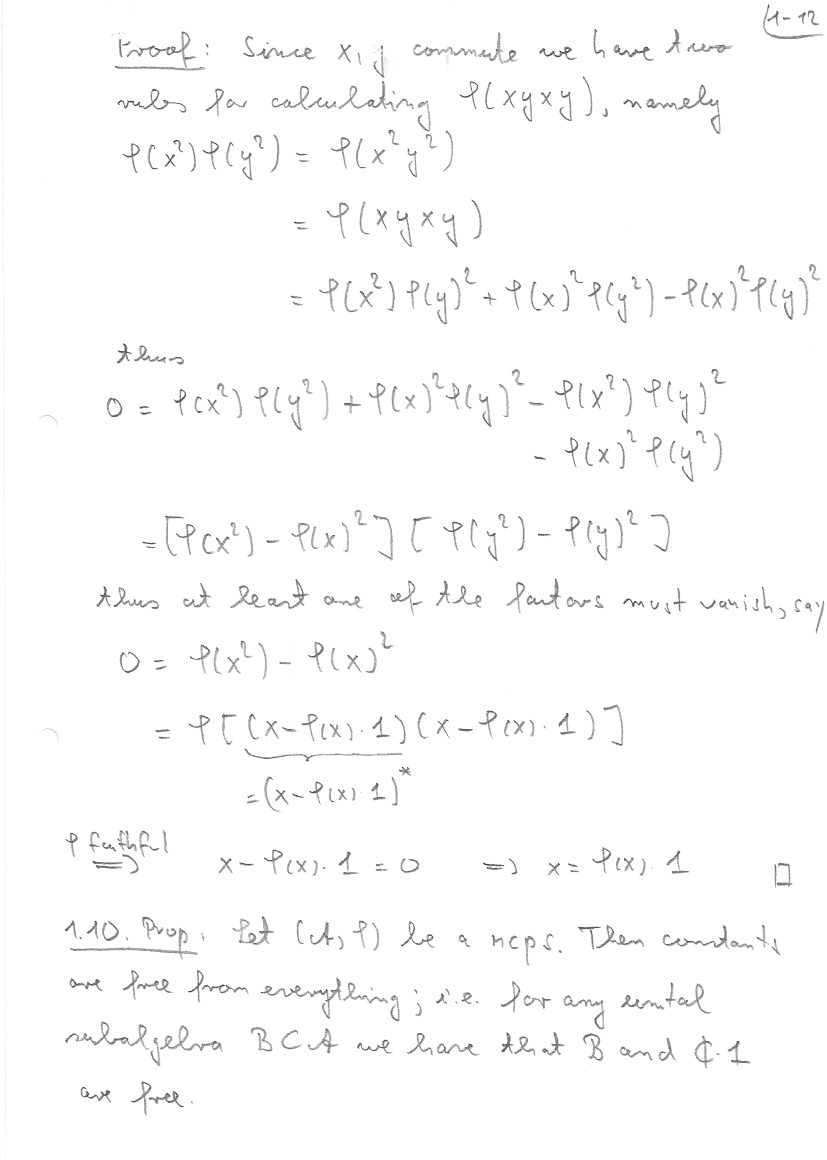 1-12
Proof: Since x, y commute we have two
rules for calculating φ(xyxy), namely
φ(x²)φ(y²) = φ(x²y²)
= φ(xyxy)
= φ(x²)φ(y)² + φ(x)²φ(y²) - φ(x)²φ(y)²
thus
0 = φ(x²)φ(y²) + φ(x)²φ(y)² - φ(x²)φ(y)²
- φ(x)²φ(y²)
= [φ(x²) - φ(x)²] [φ(y²) - φ(y)²]
thus at least one of the factors must vanish, say
0 = φ(x²) - φ(x)²
= φ[(x-φ(x)·1)(x-φ(x)·1)]
=(x-φ(x)·1)*
φ faithful
⇒ x-φ(x)·1 = 0 ⇒ x = φ(x)·1 □
1.10. Prop. Let (A, φ) be a ncps. Then constants
are free from everything; i.e. for any unital
subalgebra B ⊂ A we have that B and ℂ·1
are free.